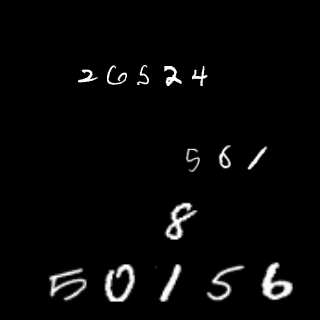 26524
561
8
50156